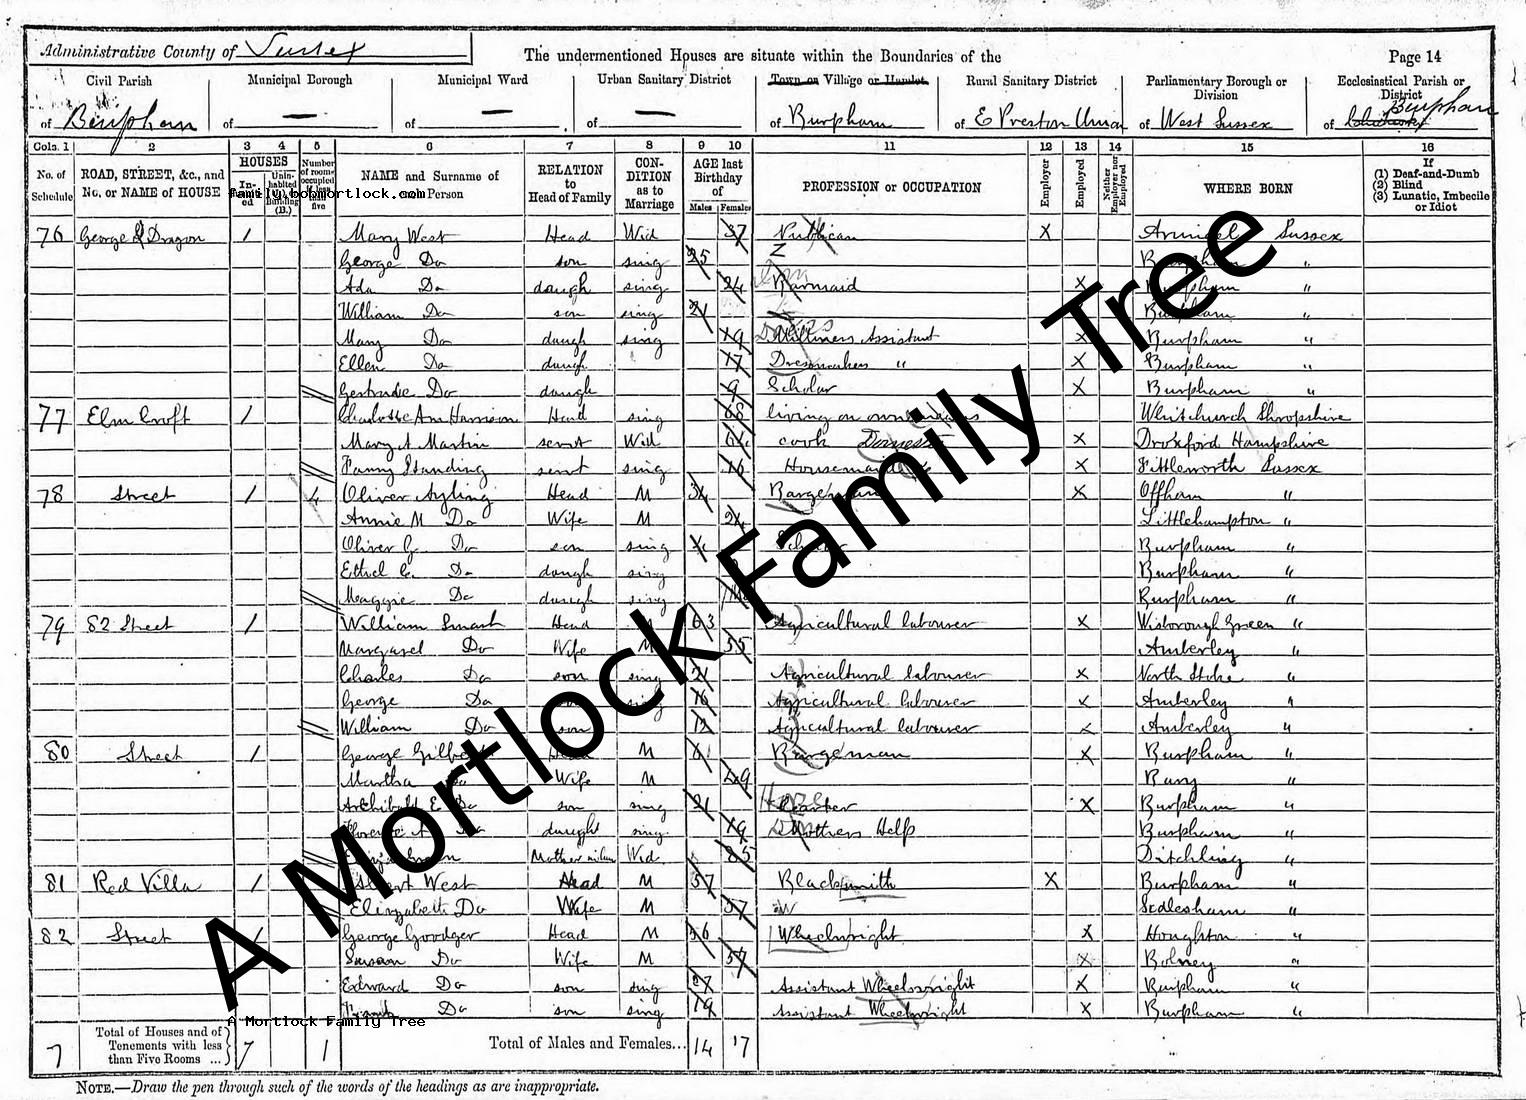 Administrative County of Sussex
The undermentioned Houses are situate within the Boundaries of the
Page 14
Civil Parish Municipal Borough Municipal Ward Urban Sanitary District Town or Village or Hamlet Rural Sanitary District Parliamentary Borough or Division Ecclesiastical Parish or District
of Burpham of — of — of — of Burpham of E Preston Union of West Sussex of Burpham
Cols. 1 2 3 4 5 6 7 8 9 10 11 12 13 14 15 16
No. of Schedule ROAD, STREET, &c., and No. or NAME of HOUSE HOUSES In- habit- ed Unin- habited Building (B.) Number of rooms occupied if less than five NAME and Surname of each Person RELATION to Head of Family CON- DITION as to Marriage AGE last Birthday of Males Females PROFESSION or OCCUPATION Employer Employed Neither Employer nor Employed WHERE BORN If (1) Deaf-and-Dumb (2) Blind (3) Lunatic, Imbecile or Idiot
family.bobmortlock.com
76 George & Dragon 1 Mary West Head Wid Publican X Arundel Sussex
George Do son sing 25 Burpham "
Ada Do daugh sing 24 Barmaid X Burpham "
William Do son sing 21 Burpham "
Mary Do daugh sing 19 Milliners Assistant X Burpham "
Ellen Do daugh 17 Dressmakers " X Burpham "
Gertrude Do daugh 9 Scholar X Burpham "
77 Elm Croft 1 Charlotte Ann Harrison Head sing 68 living on own means Whitchurch Shropshire
Mary A Martin servt Wid 64 cook Domestic X Droxford Hampshire
Fanny Standing servt sing 16 Housemaid X Fittleworth Sussex
78 Street 1 4 Oliver Ayling Head M 34 Bargeman X Offham "
Annie M Do Wife M Littlehampton "
Oliver G Do son sing Scholar Burpham "
Ethel C. Do daugh sing Burpham "
Maggie Do daugh sing Burpham "
79 82 Street 1 William Smart Head M 63 Agricultural labourer X Wisborough Green "
Margaret Do Wife M 55 Amberley "
Charles Do son sing 21 Agricultural labourer X North Stoke "
George Do son sing 16 Agricultural labourer X Amberley "
William Do son 12 Agricultural labourer X Amberley "
80 Street 1 George Gilbert Head M 61 Bargeman X Burpham "
Martha Do Wife M 49 Bury "
Archibald E Do son sing 21 Carter X Burpham "
Florence A Do daught sing 19 Mothers Help Burpham "
Mother in law Wid 85 Ditchling "
81 Red Villa 1 Albert West Head M 57 Blacksmith X Burpham "
Elizabeth Do Wife M 57 Sidlesham "
82 Street 1 George Goodger Head M 56 Wheelwright X Houghton "
Susan Do Wife M 57 X Bolney "
Edward Do son sing 27 Assistant Wheelwright X Burpham "
Frank Do son sing 19 Assistant Wheelwright X Burpham "
A Mortlock Family Tree
A Mortlock Family Tree
7 Total of Houses and of Tenements with less than Five Rooms ... 7 1 Total of Males and Females... 14 17
NOTE.—Draw the pen through such of the words of the headings as are inappropriate.